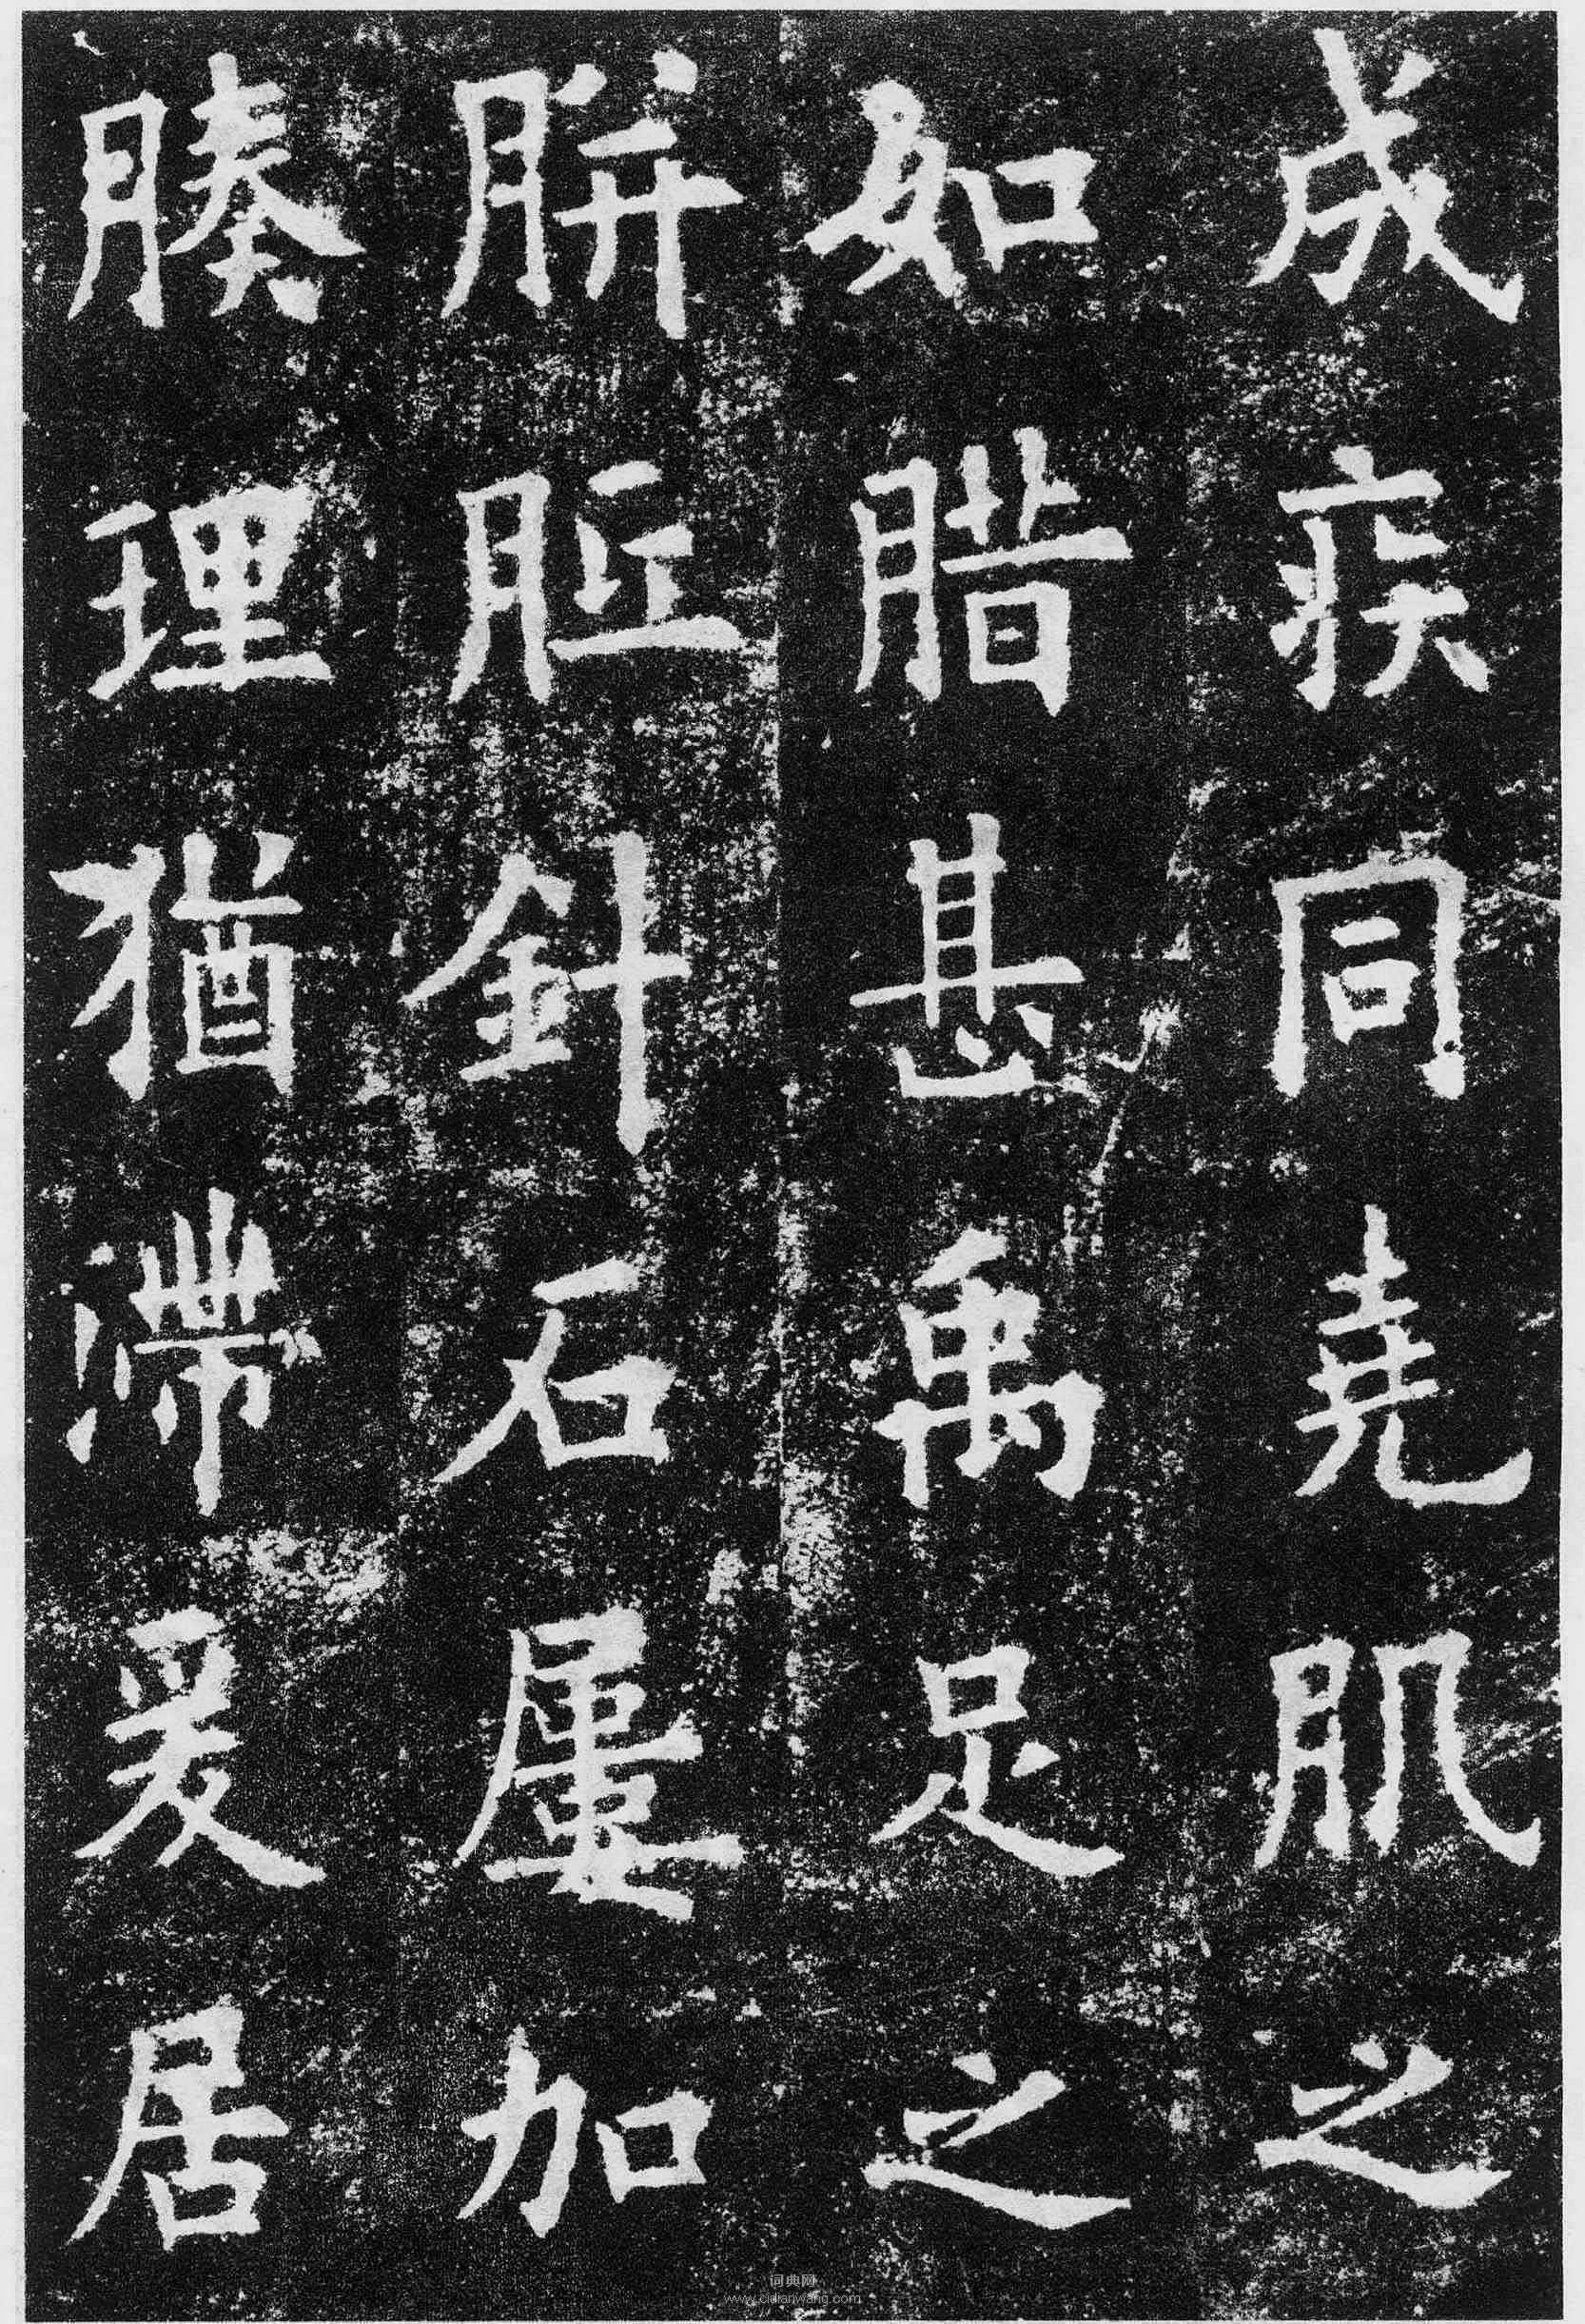 成疾同堯肌之
如腊甚禹足之
胼胝針石屢加
腠理猶滯爰居
词典网
www.cidianwang.com